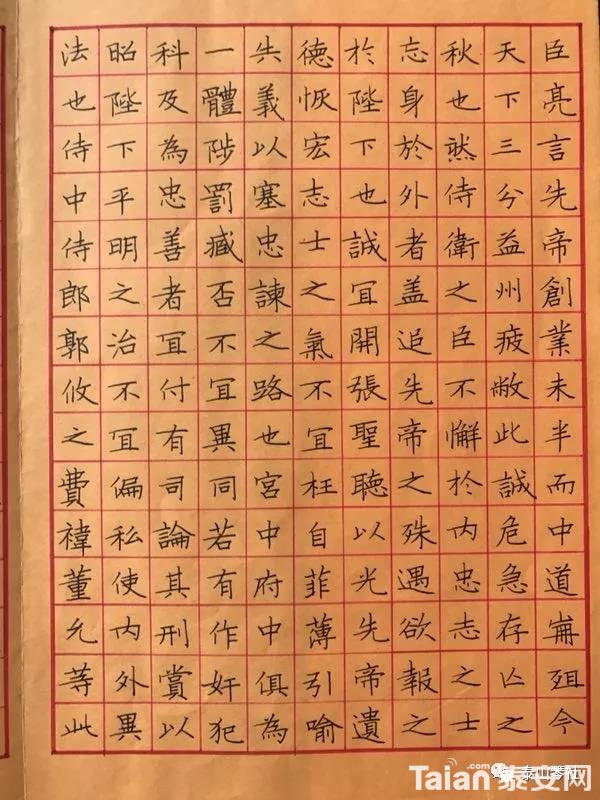 臣亮言先帝創業未半而中道崩殂今
天下三分益州疲敝此誠危急存亡之
秋也然侍衛之臣不懈於內忠志之士
忘身於外者盖追先帝之殊遇欲報之
於陛下也誠冝開張聖聽以光先帝遺
德恢宏志士之氣不冝枉自菲薄引喻
失義以塞忠諫之路也宮中府中俱為
一體陟罰臧否不冝異同若有作奸犯
科及為忠善者冝付有司論其刑賞以
昭陛下平明之治不冝偏私使內外異
法也侍中侍郎郭攸之費禕董允等此
.com
Taian泰安网